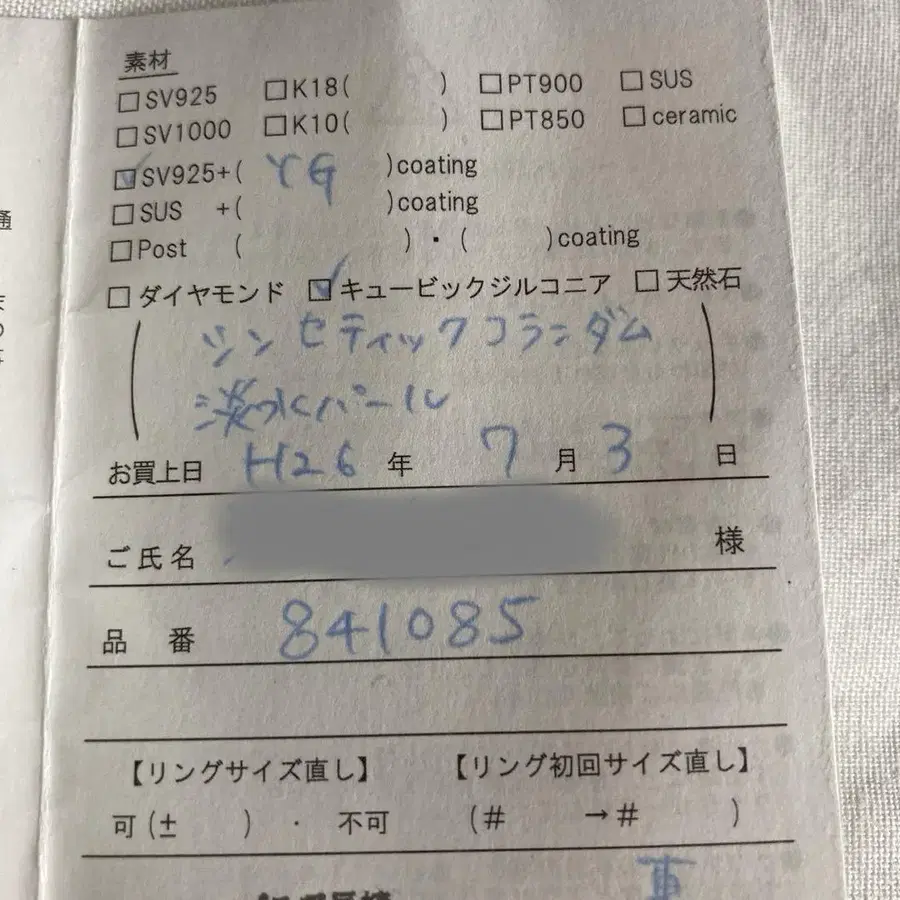 素材
□SV925 □K18( ) □PT900 □SUS
□SV1000 □K10( ) □PT850 □ceramic
☑SV925+( YG )coating
□SUS +( )coating
□Post ( )・( )coating
□ダイヤモンド ☑キュービックジルコニア □天然石
(シンセティックコランダム
淡水パール)
お買上日 H26 年 7 月 3 日
ご氏名 様
品 番 841085
【リングサイズ直し】 【リング初回サイズ直し】
可(± )・ 不可 (# →# )
通